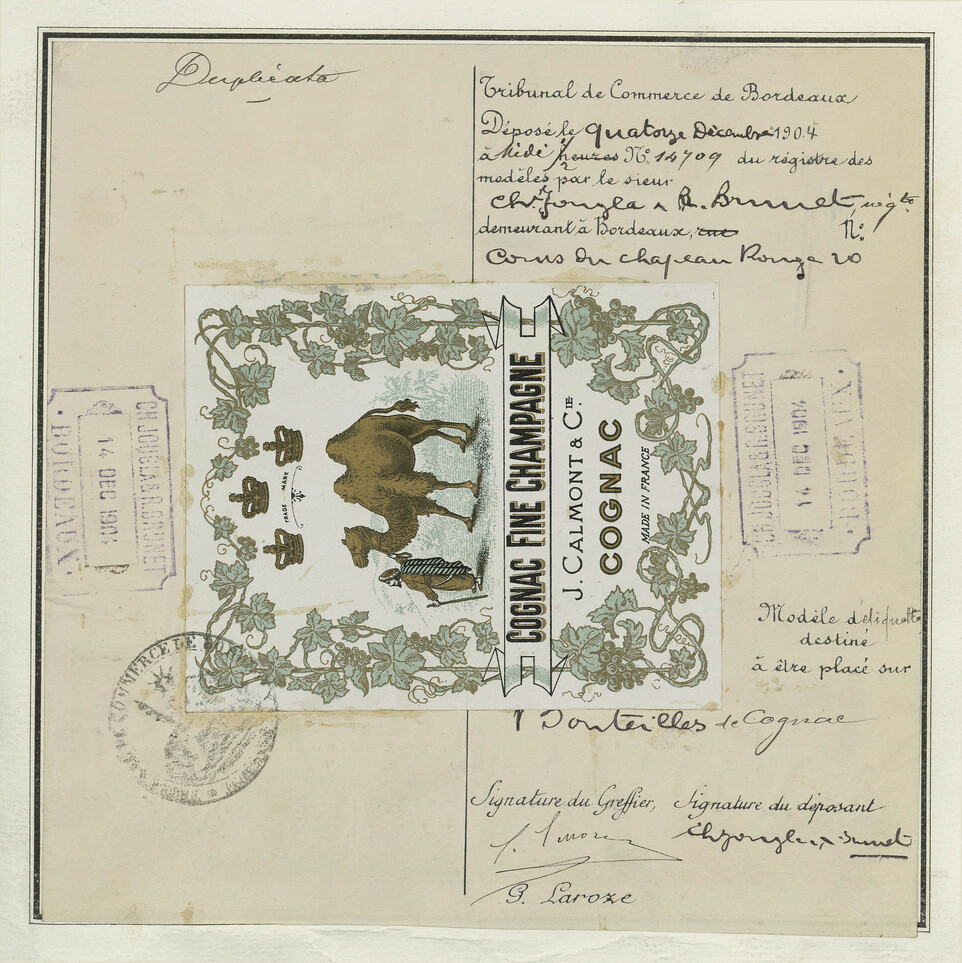 Duplicata
Tribunal de Commerce de Bordeaux
Déposé le quatorze Décembre 1904
à Midi heures Nº 14709 du régistre des
modèles par le sieur
Ch. Jougla & R. Brunet, négts
demeurant à Bordeaux, rue Nº
Cours du chapeau Rouge 20
TRADE MARK
COGNAC FINE CHAMPAGNE
J. CALMONT & CIE.
COGNAC
MADE IN FRANCE
CH. JOUGLA & R. BRUNET
14 DEC 1904
BORDEAUX
CH. JOUGLA & R. BRUNET
14 DEC 1904
BORDEAUX
COMMERCE DE
Modèle d'étiquette
destiné
à être placé sur
Bouteilles de Cognac
Signature du Greffier, Signature du déposant
Ch Jougla & R Brunet
G. Laroze